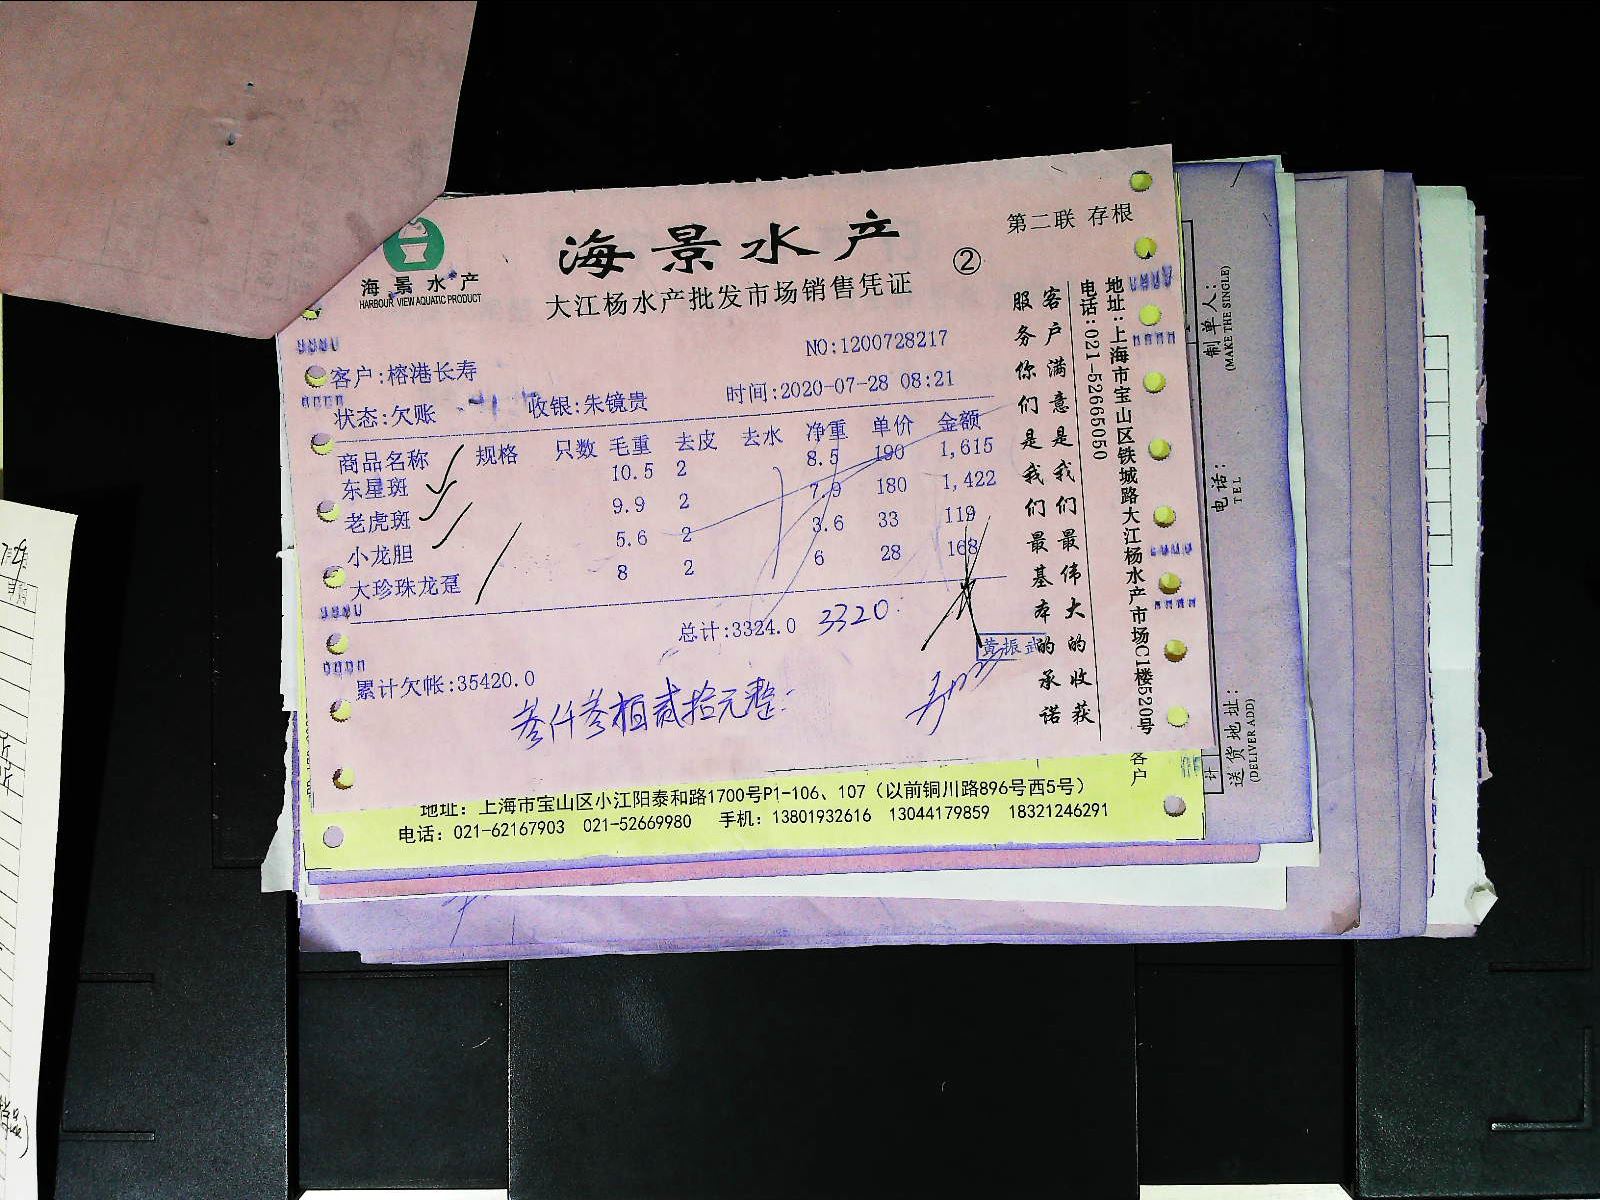 海景水产
HARBOUR VIEW AQUATIC PRODUCT
海景水产
大江杨水产批发市场销售凭证
②
第二联 存根
NO:1200728217
客户:榕港长寿
状态:欠账 收银:朱镜贵 时间:2020-07-28 08:21
商品名称 规格 只数 毛重 去皮 去水 净重 单价 金额
东星斑 10.5 2 8.5 190 1,615
老虎斑 9.9 2 7.9 180 1,422
小龙胆 5.6 2 3.6 33 119
大珍珠龙趸 8 2 6 28 168
总计:3324.0 3320
累计欠帐:35420.0
叁仟叁佰贰拾元整
黄振武
客户满意是我们最伟大的收获
服务你们是我们最基本的承诺
地址:上海市宝山区铁城路大江杨水产市场C1楼520号
电话:021-52665050
客户
地址：上海市宝山区小江阳泰和路1700号P1-106、107（以前铜川路896号西5号）
电话：021-62167903 021-52669980 手机：13801932616 13044179859 18321246291
制单人:
(MAKE THE SINGLE)
电话:
TEL
送货地址:
(DELIVER ADD)
计